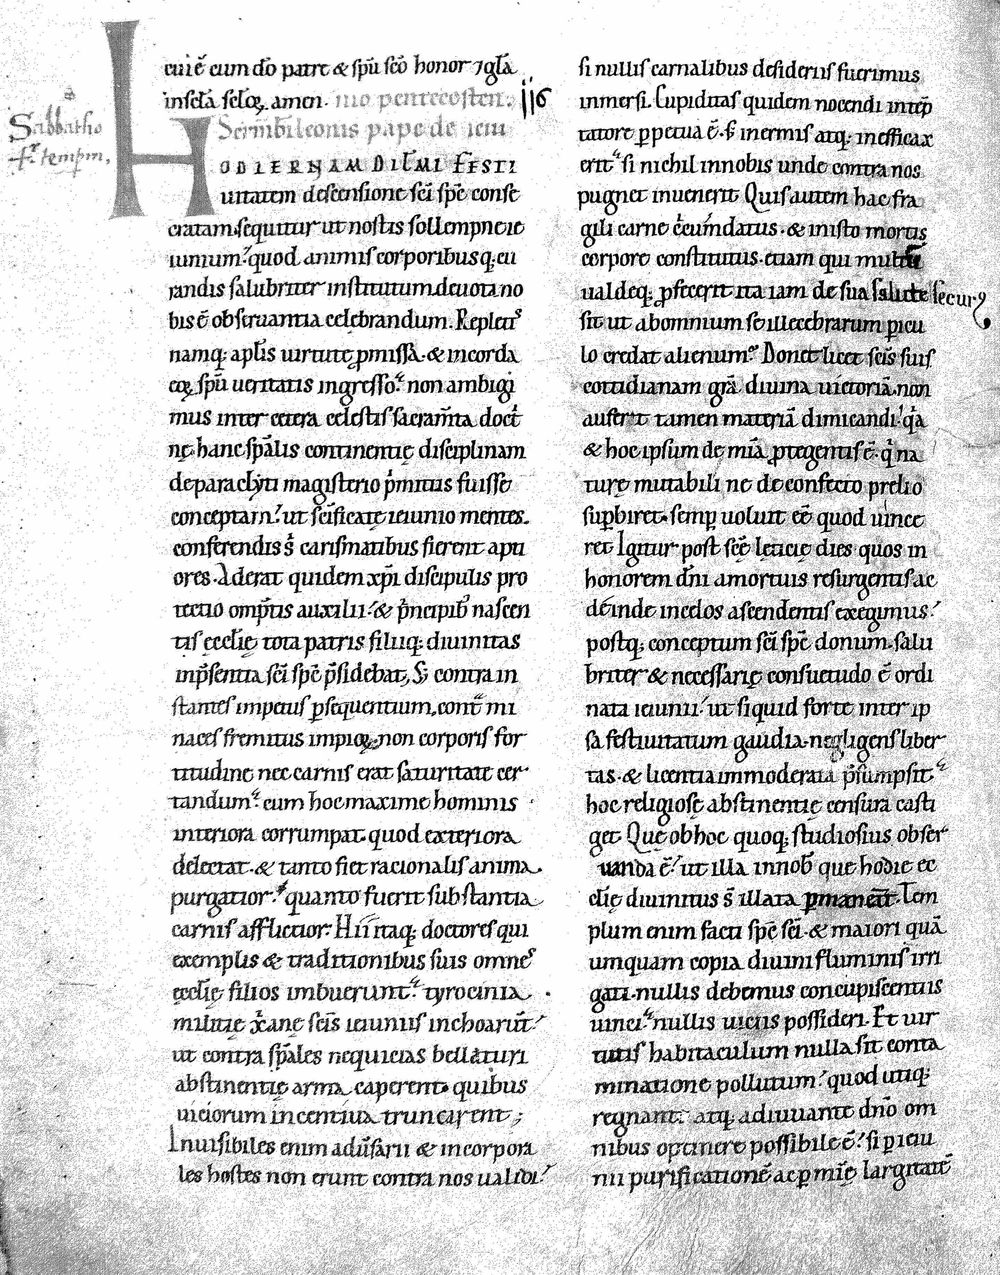 cui ē cum dō patre & spū scō honor ⁊ gl̄a
in scl̄a scl̄oꝝ amen. nio pentecosten. 116
Sabbatho
4r tempm̄,
Serm̄ b̄ leonis pape de ieiu
HODIERNAM DILMI FESTI
uitatem descensione sc̄i sp̄c conse
cratam. sequitur ut nostis sollempne ie
iunium. quod animis corporibusq; cu
randis salubriter institutum. deuota no
bis ē obseruantia celebrandum. Repletis
namq; apl̄is uirtute ꝓmissa. & in corda
eoꝝ spū ueritatis ingresso. non ambigi
mus inter cetera celestis sacram̄ta doct
nę hanc sp̄alis continentię disciplinam
de paraclyti magisterio p̍mitus fuisse
conceptam. ut sc̄ificatę ieiunio mentes.
conferendis s̄ carismatibus fierent apti
ores. Aderat quidem xp̄i discipulis pro
tectio omp̄tis auxilii. & p̍ncipib; nascen
tis ęcclię tota patris filiiq; diuinitas
in p̄sentia sc̄i sp̄c p̄sidebat, S; contra in
stantes impetus ꝑsequentium. cont̄ mi
naces fremitus impioꝝ. non corporis for
titudine nec carnis erat saturitate cer
tandum. cum hoc maxime hominis
interiora corrumpat. quod exteriora
delectat. & tanto fiet racionalis anima
purgatior. quanto fuerit substantia
carnis afflictior. Hii itaq; doctores qui
exemplis & traditionibus suis omnes
ęcclię filios imbuerunt. tyrocinia
militię x̄anę sc̄is ieiuniis inchoarūt.
ut contra sp̄ales nequicias bellaturi
abstinentię arma caperent. quibus
uiciorum incentiua truncarent;
Inuisibiles enim adūsarii & incorpora
les hostes non erunt contra nos ualidi.
si nullis carnalibus desideriis fuerimus
inmersi. Cupiditas quidem nocendi in tēp
tatore ꝑpetua ē. s; inermis atq; inefficax
erit. si nichil in nobis unde contra nos
pugnet inuenerit. Quis autem hac fra
gili carne c̍cūmdatus. & in isto mortis
corpore constitutus. etiam qui multū
ualdeq; ꝓfecerit. ita iam de sua salute securꝯ
sit ut ab omnium se illecebrarum ꝑicu
lo credat alienum. Donet licet sc̄is suis
cottidianam grā diuina uictoriā. non
aufert tamen materiā dimicandi. q̍a
& hoc ipsum de mīa ꝓtegentis ē. q̍ na
turę mutabili ne de confecto prelio
suꝑbiret. semꝑ uoluit eē quod uince
ret. Igitur post scē lęticię dies quos in
honorem dn̄i a mortuis resurgentis ac
deinde in cęlos ascendentis exegimus.
postq; conceptum sc̄i sp̄c donum. salu
briter & necessarię consuetudo ē ordi
nata ieiunii. ut siquid forte inter ip
sa festiuitatum gaudia. negligens liber
tas. & licentia immoderata p̄sumpsit.
hoc religiosę abstinentię censura casti
get. Quę ob hoc quoq; studiosius obser
uanda ē. ut illa in nob̄ que hodie ec
clię diuinitus s̄ illata ꝑmaneāt. Tem
plum enim facti sp̄c sc̄i. & maiori quā
umquam copia diuini fluminis irri
gati. nullis debemus concupiscentiis
uinci. nullis uiciis possideri. Et uir
tutis habitaculum nulla sit conta
minatione pollutum. quod utiq;
regnante atq; adiuuante dn̄o om
nibus optinere possibile ē. si ꝑ ieiu
nii purificationē ac ꝑ mīę largitatē